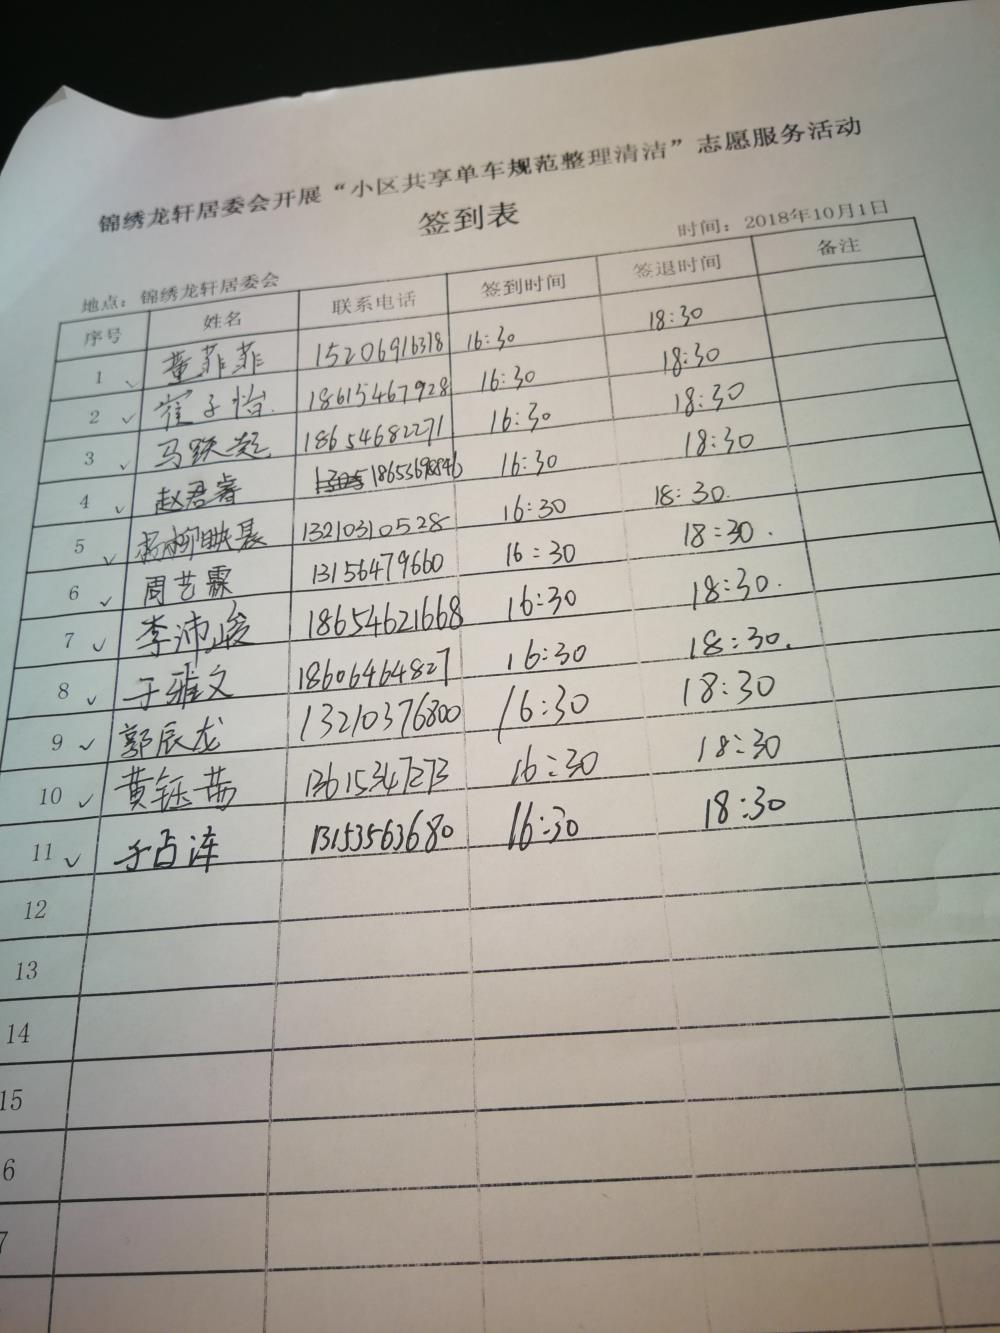 锦绣龙轩居委会开展“小区共享单车规范整理清洁”志愿服务活动
签到表
地点：锦绣龙轩居委会 时间：2018年10月1日
序号 姓名 联系电话 签到时间 签退时间 备注
1 董菲菲 15206916318 16:30 18:30
2 崔子怡 18615467928 16:30 18:30
3 马跃起 18654682271 16:30 18:30
4 赵君睿 18653698846 16:30 18:30
5 杨柳映晨 13210310528 16:30 18:30
6 周艺霖 13156479660 16:30 18:30
7 李沛峻 18654621668 16:30 18:30
8 于雅文 18606464827 16:30 18:30
9 郭辰龙 13210376800 16:30 18:30
10 黄钰茜 13615347273 16:30 18:30
11 于占涛 13153563680 16:30 18:30
12
13
14
15
6
7